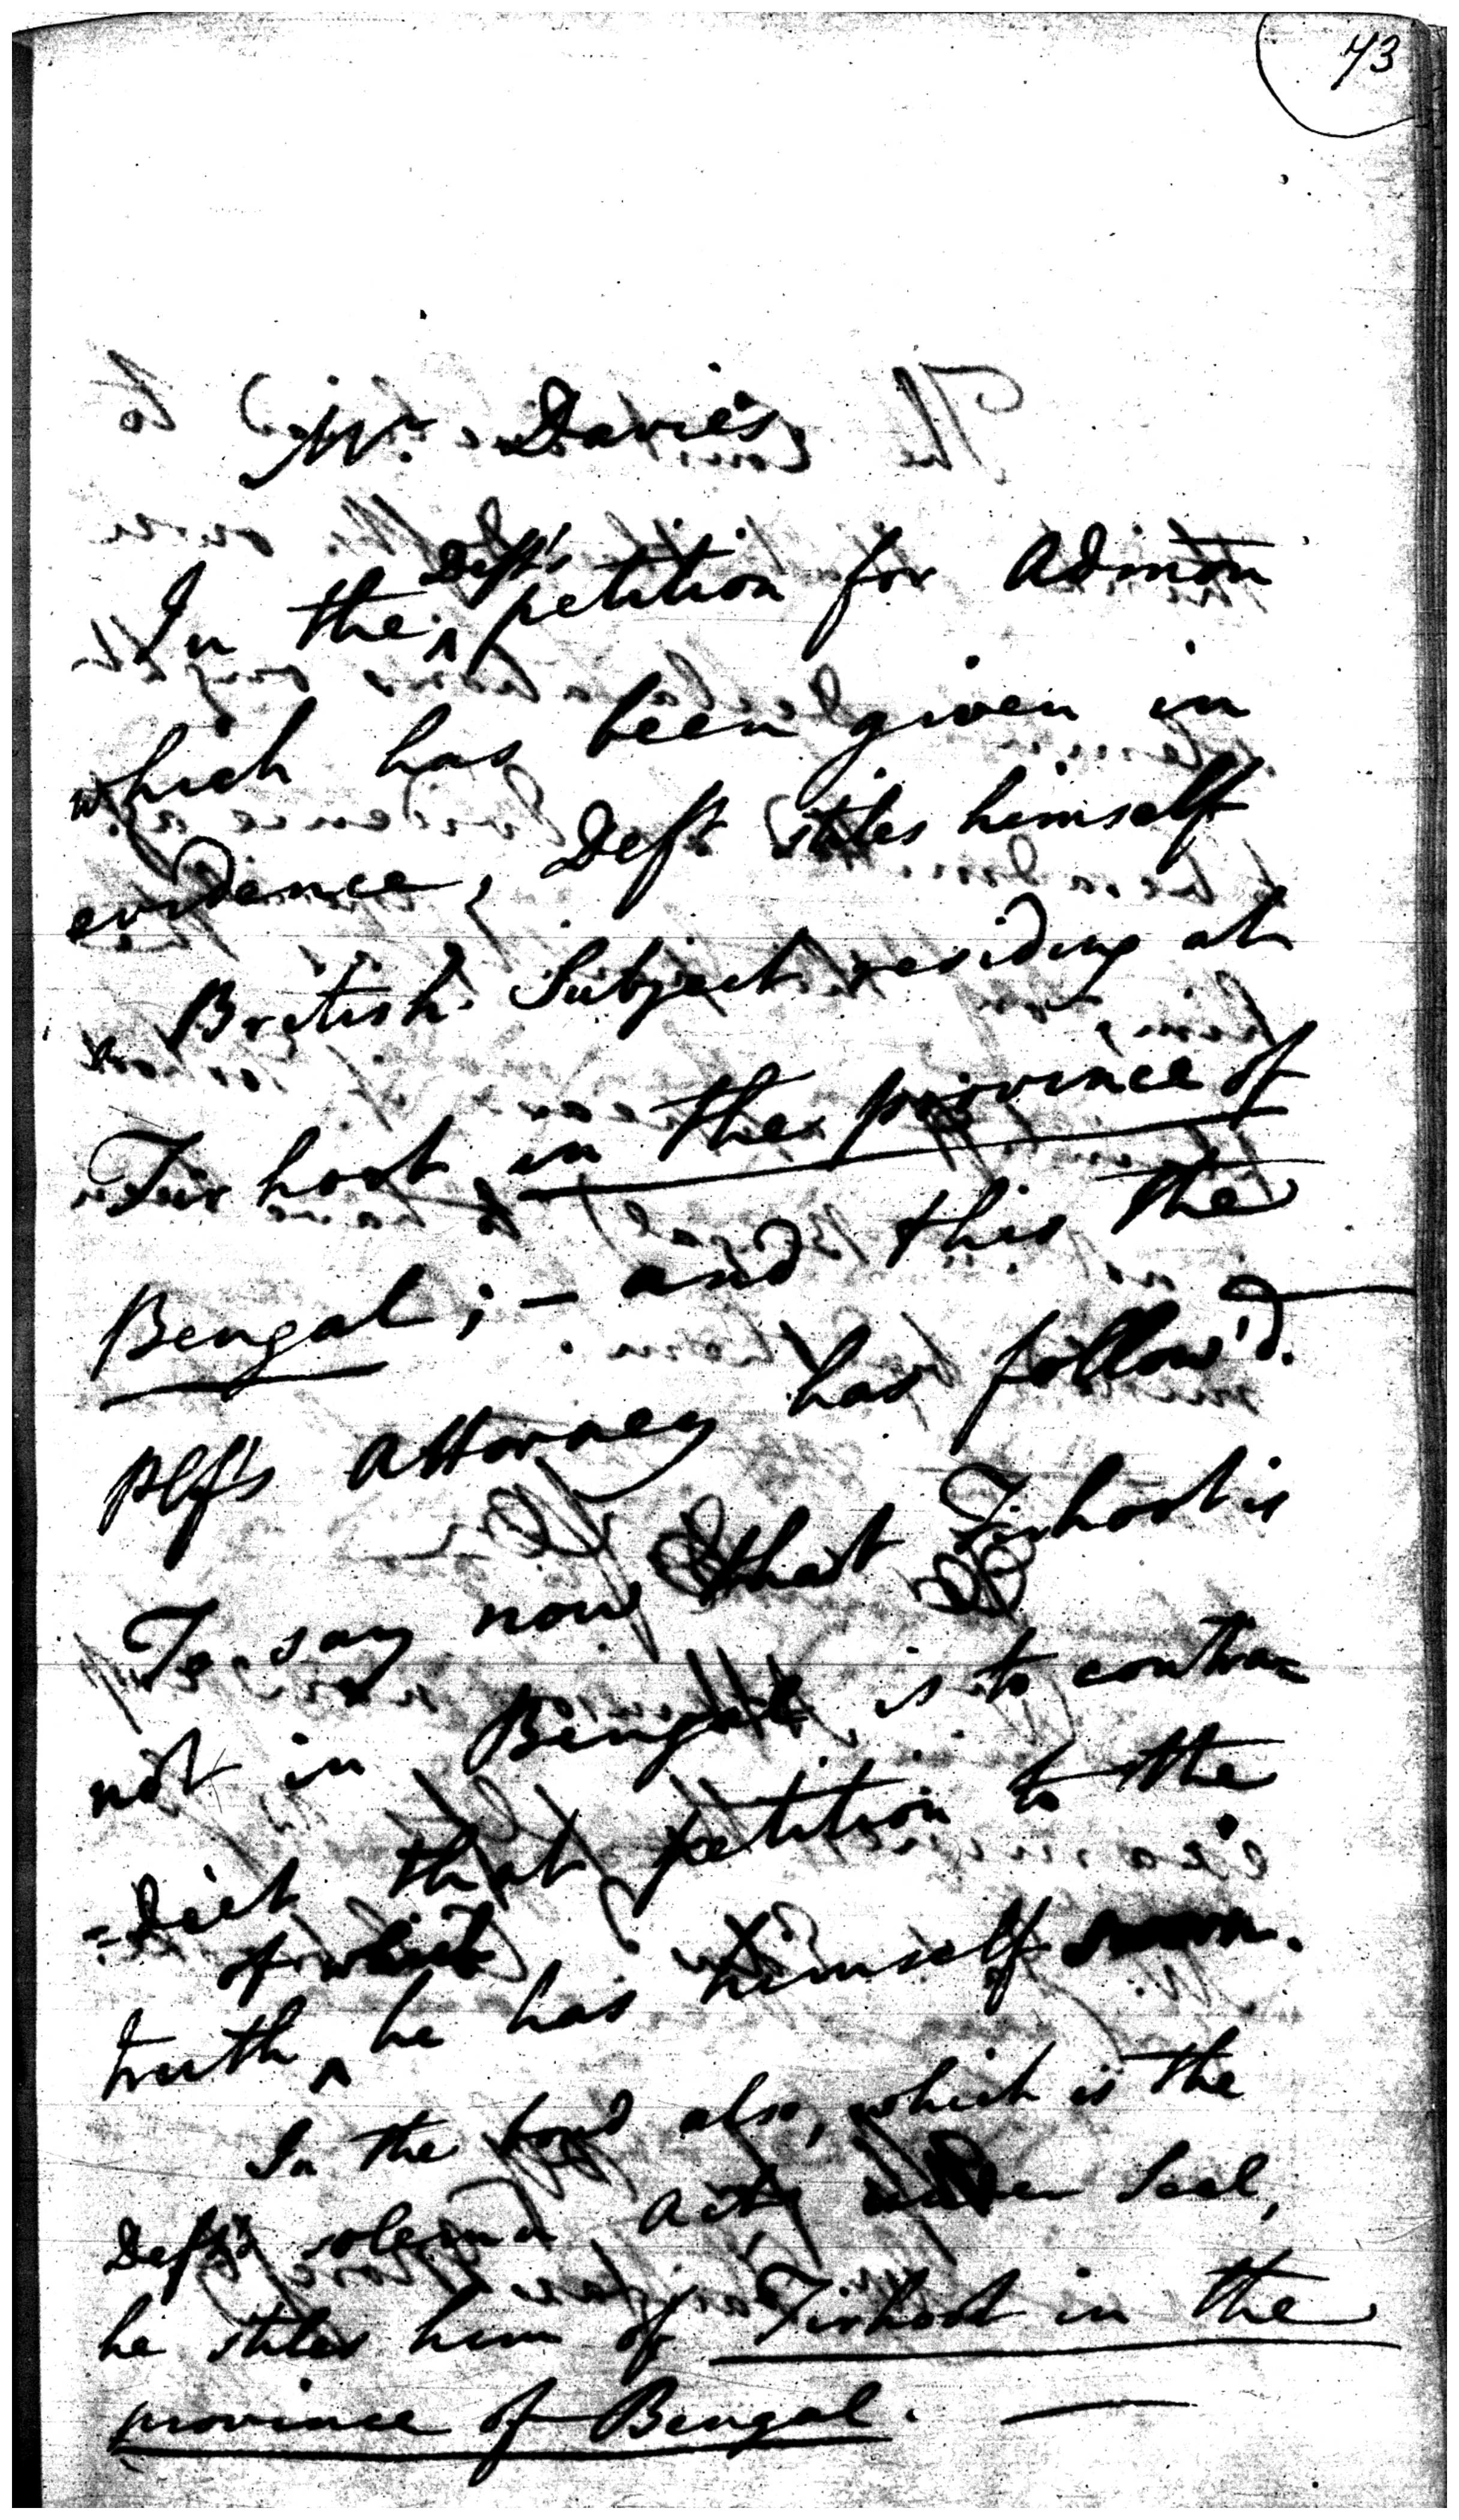 73
Mr. Davies
In the ^ Deft's petition for Admōn
which has been given in
evidence, Deft stiles himself
a British Subject residing at
Tirhoot in the province of
Bengal; — and this the
Plf's Attorney has follow'd.
To say now that Tirhoot is
not in Bengal, is to contra=
=dict that petition to the
truth ^ of which he has himself sworn.
In the bond also, which is the
Deft's solemn Act, under Seal,
he stiles him of Tirhoot in the
province of Bengal. —